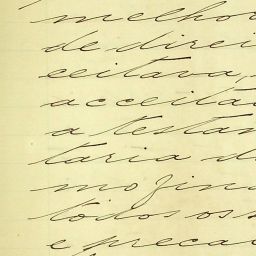 melhor
de direi
ceitava,
acceita
a testa
taria d
mo fin
todos os
e preca